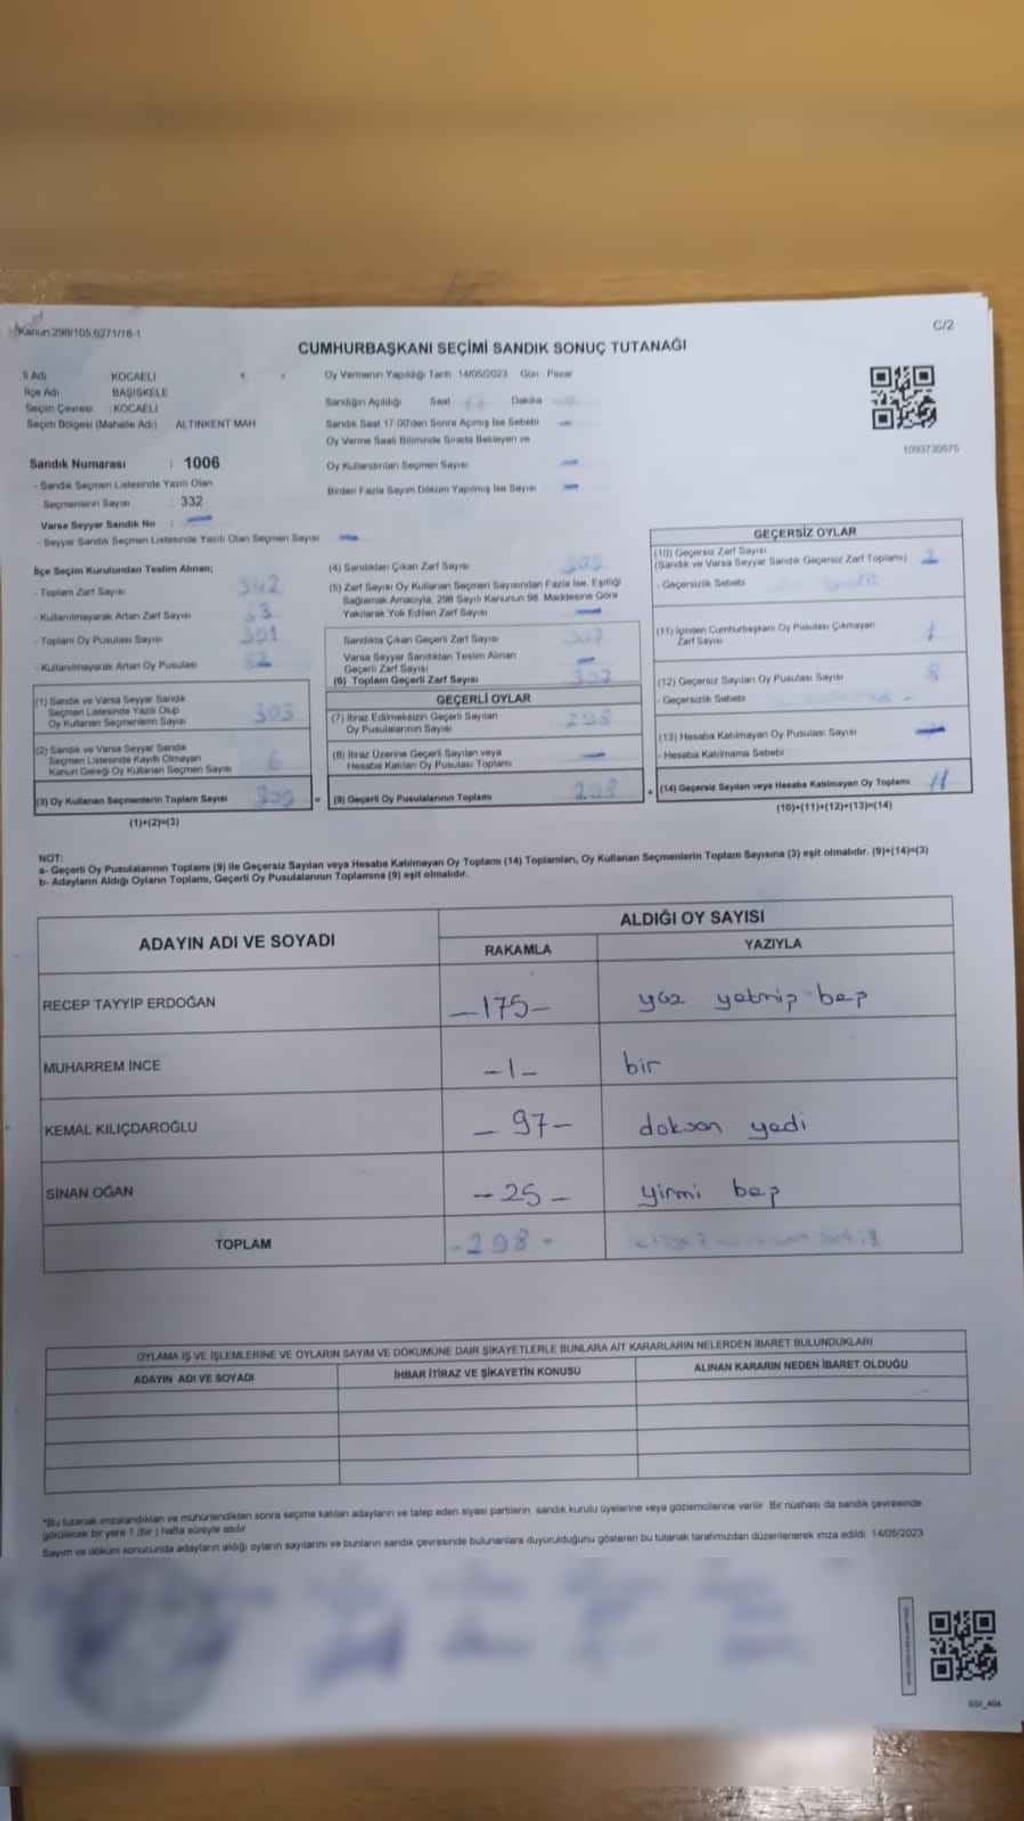 Kanun:298/105,6271/16-1
C/2
CUMHURBAŞKANI SEÇİMİ SANDIK SONUÇ TUTANAĞI
İl Adı KOCAELİ
İlçe Adı BAŞİSKELE
Seçim Çevresi : KOCAELİ
Seçim Bölgesi (Mahalle Adı) ALTINKENT MAH
Sandık Numarası : 1006
- Sandık Seçmen Listesinde Yazılı Olan
Seçmenlerin Sayısı : 332
Varsa Seyyar Sandık No :
- Seyyar Sandık Seçmen Listesinde Yazılı Olan Seçmen Sayısı
Oy Vermenin Yapıldığı Tarih 14/05/2023 Gün Pazar
Sandığın Açıldığı Saat Dakika
Sandık Saat 17.00'den Sonra Açılmış İse Sebebi
Oy Verme Saati Bitiminde Sırada Bekleyen ve
Oy Kullandırılan Seçmen Sayısı
Birden Fazla Sayım Döküm Yapılmış İse Sayısı
1093730575
İlçe Seçim Kurulundan Teslim Alınan;
- Toplam Zarf Sayısı 342
- Kullanılmayarak Artan Zarf Sayısı
- Toplam Oy Pusulası Sayısı
- Kullanılmayarak Artan Oy Pusulası
(1) Sandık ve Varsa Seyyar Sandık
Seçmen Listesinde Yazılı Olup
Oy Kullanan Seçmenlerin Sayısı 303
(2) Sandık ve Varsa Seyyar Sandık
Seçmen Listesinde Kayıtlı Olmayan
Kanun Gereği Oy Kullanan Seçmen Sayısı 6
(3) Oy Kullanan Seçmenlerin Toplam Sayısı 309
(1)+(2)=(3)
(4) Sandıktan Çıkan Zarf Sayısı
(5) Zarf Sayısı Oy Kullanan Seçmen Sayısından Fazla İse, Eşitliği
Sağlamak Amacıyla, 298 Sayılı Kanunun 98. Maddesine Göre
Yakılarak Yok Edilen Zarf Sayısı
Sandıkta Çıkan Geçerli Zarf Sayısı 307
Varsa Seyyar Sandıktan Teslim Alınan
Geçerli Zarf Sayısı
(6) Toplam Geçerli Zarf Sayısı 307
GEÇERLİ OYLAR
(7) İtiraz Edilmeksizin Geçerli Sayılan
Oy Pusulalarının Sayısı 298
(8) İtiraz Üzerine Geçerli Sayılan veya
Hesaba Katılan Oy Pusulası Toplamı
(9) Geçerli Oy Pusulalarının Toplamı 298
GEÇERSİZ OYLAR
(10) Geçersiz Zarf Sayısı
(Sandık ve Varsa Seyyar Sandık Geçersiz Zarf Toplamı) 2
- Geçersizlik Sebebi
(11) İçinden Cumhurbaşkanı Oy Pusulası Çıkmayan
Zarf Sayısı 1
(12) Geçersiz Sayılan Oy Pusulası Sayısı 8
- Geçersizlik Sebebi
(13) Hesaba Katılmayan Oy Pusulası Sayısı
- Hesaba Katılmama Sebebi
(14) Geçersiz Sayılan veya Hesaba Katılmayan Oy Toplamı 11
(10)+(11)+(12)+(13)=(14)
NOT:
a- Geçerli Oy Pusulalarının Toplamı (9) ile Geçersiz Sayılan veya Hesaba Katılmayan Oy Toplamı (14) Toplamları, Oy Kullanan Seçmenlerin Toplam Sayısına (3) eşit olmalıdır. (9)+(14)=(3)
b- Adayların Aldığı Oyların Toplamı, Geçerli Oy Pusulalarının Toplamına (9) eşit olmalıdır.
ADAYIN ADI VE SOYADI ALDIĞI OY SAYISI
RAKAMLA YAZIYLA
RECEP TAYYİP ERDOĞAN -175- yüz yetmiş beş
MUHARREM İNCE -1- bir
KEMAL KILIÇDAROĞLU - 97- doksan yedi
SİNAN OĞAN -25- yirmi beş
TOPLAM -298-
OYLAMA İŞ VE İŞLEMLERİNE VE OYLARIN SAYIM VE DÖKÜMÜNE DAİR ŞİKAYETLERLE BUNLARA AİT KARARLARIN NELERDEN İBARET BULUNDUKLARI
ADAYIN ADI VE SOYADI İHBAR İTİRAZ VE ŞİKAYETİN KONUSU ALINAN KARARIN NEDEN İBARET OLDUĞU
*Bu tutanak imzalandıktan ve mühürlendikten sonra seçime katılan adayların ve talep eden siyasi partilerin sandık kurulu üyelerine veya gözlemcilerine verilir. Bir nüshası da sandık çevresinde
görülecek bir yere 1 (Bir) hafta süreyle asılır.
Sayım ve döküm sonucunda adayların aldığı oyların sayılarını ve bunların sandık çevresinde bulunanlara duyurulduğunu gösteren bu tutanak tarafımızdan düzenlenerek imza edildi. 14/05/2023